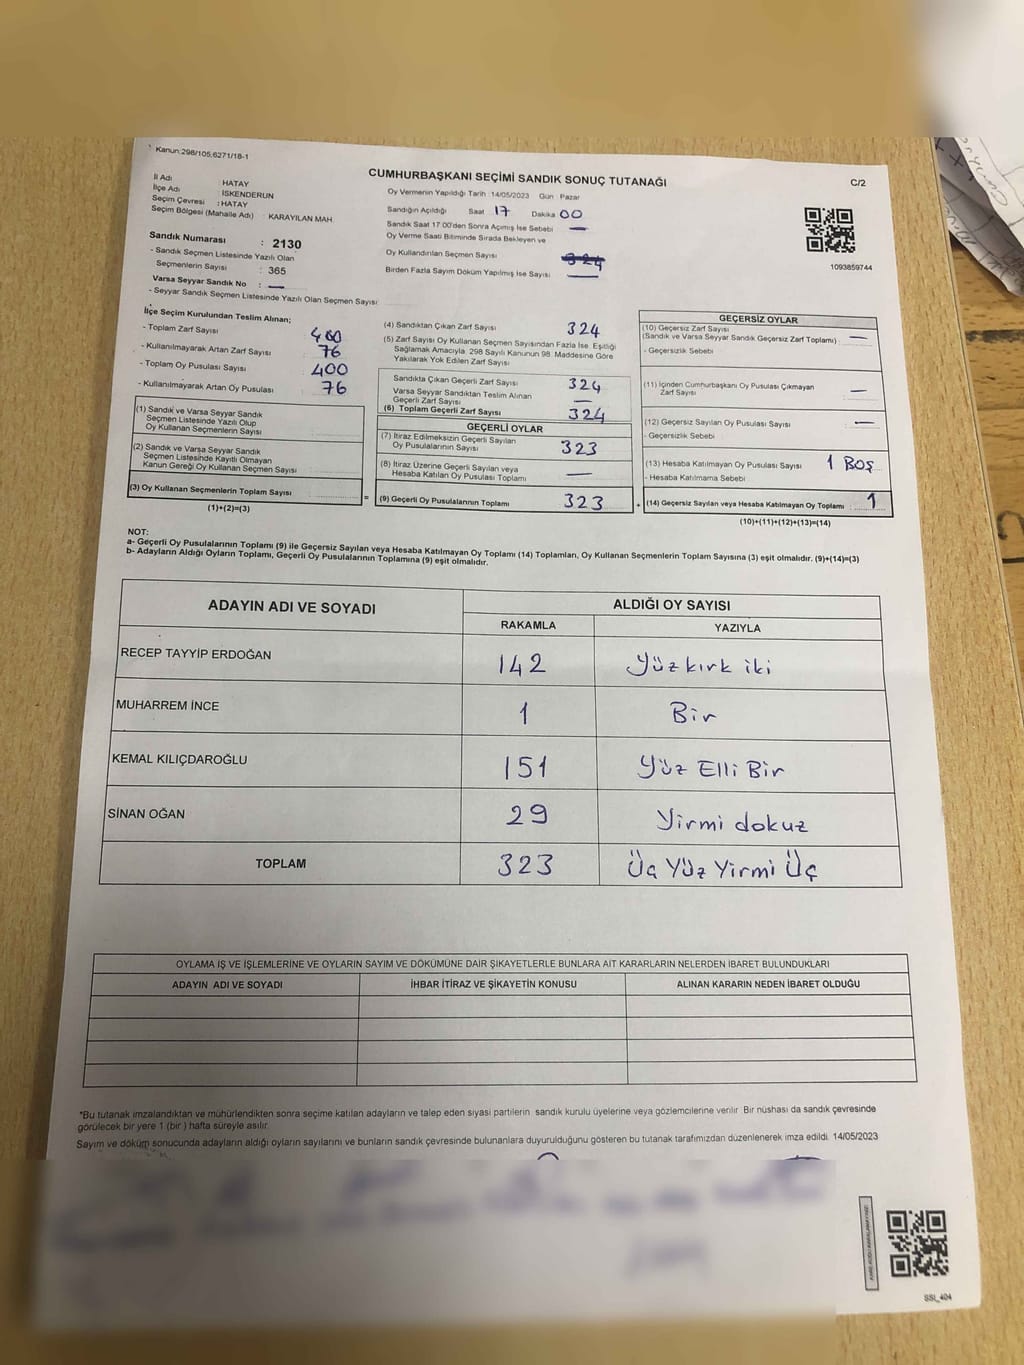 Kanun:298/105,6271/18-1
CUMHURBAŞKANI SEÇİMİ SANDIK SONUÇ TUTANAĞI
C/2
İl Adı : HATAY
İlçe Adı : İSKENDERUN
Seçim Çevresi : HATAY
Seçim Bölgesi (Mahalle Adı) : KARAYILAN MAH.
Sandık Numarası : 2130
- Sandık Seçmen Listesinde Yazılı Olan
Seçmenlerin Sayısı : 365
Varsa Seyyar Sandık No : —
- Seyyar Sandık Seçmen Listesinde Yazılı Olan Seçmen Sayısı
Oy Vermenin Yapıldığı Tarih : 14/05/2023 Gün : Pazar
Sandığın Açıldığı Saat 17 Dakika 00
Sandık Saat 17.00'den Sonra Açımış İse Sebebi —
Oy Verme Saati Bitiminde Sırada Bekleyen ve
Oy Kullandırılan Seçmen Sayısı 324
Birden Fazla Sayım Döküm Yapılmış İse Sayısı —
1093859744
İlçe Seçim Kurulundan Teslim Alınan;
- Toplam Zarf Sayısı 400
- Kullanılmayarak Artan Zarf Sayısı 76
- Toplam Oy Pusulası Sayısı 400
- Kullanılmayarak Artan Oy Pusulası 76
(1) Sandık ve Varsa Seyyar Sandık
Seçmen Listesinde Yazılı Olup
Oy Kullanan Seçmenlerin Sayısı
(2) Sandık ve Varsa Seyyar Sandık
Seçmen Listesinde Kayıtlı Olmayan
Kanun Gereği Oy Kullanan Seçmen Sayısı
(3) Oy Kullanan Seçmenlerin Toplam Sayısı =
(1)+(2)=(3)
(4) Sandıktan Çıkan Zarf Sayısı 324
(5) Zarf Sayısı Oy Kullanan Seçmen Sayısından Fazla İse, Eşitliği
Sağlamak Amacıyla 298 Sayılı Kanunun 98. Maddesine Göre
Yakılarak Yok Edilen Zarf Sayısı
Sandıkta Çıkan Geçerli Zarf Sayısı 324
Varsa Seyyar Sandıktan Teslim Alınan
Geçerli Zarf Sayısı —
(6) Toplam Geçerli Zarf Sayısı 324
GEÇERLİ OYLAR
(7) İtiraz Edilmeksizin Geçerli Sayılan
Oy Pusulalarının Sayısı 323
(8) İtiraz Üzerine Geçerli Sayılan veya
Hesaba Katılan Oy Pusulası Toplamı —
(9) Geçerli Oy Pusulalarının Toplamı 323 +
GEÇERSİZ OYLAR
(10) Geçersiz Zarf Sayısı
(Sandık ve Varsa Seyyar Sandık Geçersiz Zarf Toplamı) —
- Geçersizlik Sebebi
(11) İçinden Cumhurbaşkanı Oy Pusulası Çıkmayan
Zarf Sayısı —
(12) Geçersiz Sayılan Oy Pusulası Sayısı —
- Geçersizlik Sebebi
(13) Hesaba Katılmayan Oy Pusulası Sayısı 1 BOŞ
- Hesaba Katılmama Sebebi
(14) Geçersiz Sayılan veya Hesaba Katılmayan Oy Toplamı 1
(10)+(11)+(12)+(13)=(14)
NOT:
a- Geçerli Oy Pusulalarının Toplamı (9) ile Geçersiz Sayılan veya Hesaba Katılmayan Oy Toplamı (14) Toplamları, Oy Kullanan Seçmenlerin Toplam Sayısına (3) eşit olmalıdır. (9)+(14)=(3)
b- Adayların Aldığı Oyların Toplamı, Geçerli Oy Pusulalarının Toplamına (9) eşit olmalıdır.
ADAYIN ADI VE SOYADI ALDIĞI OY SAYISI
RAKAMLA YAZIYLA
RECEP TAYYİP ERDOĞAN 142 Yüzkırk iki
MUHARREM İNCE 1 Bir
KEMAL KILIÇDAROĞLU 151 Yüz Elli Bir
SİNAN OĞAN 29 Yirmi dokuz
TOPLAM 323 Üç Yüz Yirmi Üç
OYLAMA İŞ VE İŞLEMLERİNE VE OYLARIN SAYIM VE DÖKÜMÜNE DAİR ŞİKAYETLERLE BUNLARA AİT KARARLARIN NELERDEN İBARET BULUNDUKLARI
ADAYIN ADI VE SOYADI İHBAR İTİRAZ VE ŞİKAYETİN KONUSU ALINAN KARARIN NEDEN İBARET OLDUĞU
*Bu tutanak imzalandıktan ve mühürlendikten sonra seçime katılan adayların ve talep eden siyasi partilerin sandık kurulu üyelerine veya gözlemcilerine verilir. Bir nüshası da sandık çevresinde
görülecek bir yere 1 (bir) hafta süreyle asılır.
Sayım ve döküm sonucunda adayların aldığı oyların sayılarını ve bunların sandık çevresinde bulunanlara duyurulduğunu gösteren bu tutanak tarafımızdan düzenlenerek imza edildi. 14/05/2023
SSI_404